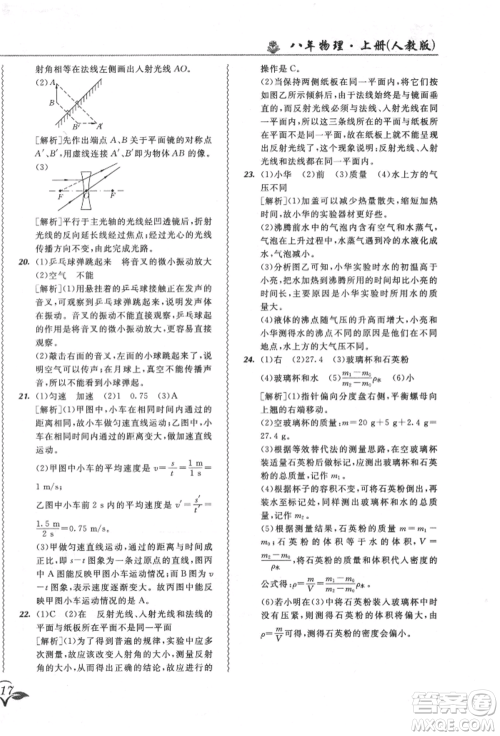 八年物理·上册(人教版)
射角相等在法线左侧画出入射光线 AO。
(2)
A
B
A′
B′
[解析]先作出端点 A、B 关于平面镜的对称点
A′、B′,虚线连接 A′、B′即为物体 AB 的像。
(3)
F
O
F
[解析]平行于主光轴的光线经凹透镜折射后,
折射光的反向延长线过焦点;过光心的光线传
播方向不变,由此完成光路。
20. (1)乒乓球弹跳起来 将音叉的微小振动放大
(2)空气 不能
[解析](1)用悬挂着的乒乓球接触正在发声的
音叉,可以观察到乒乓球弹跳起来,说明发声的
音叉在振动。音叉的振动不容易直接观察,所
以将音叉的微小振动放大为乒乓球的振动便于
观察。
(2)敲击右边的音叉,左边小球跳起来,说明声
音可以在空气中传播,月球表面是真空,真空不
能传声,所以不能看到小球弹起。
21. (1)匀速 加速 (2)1 0.75 (3)A
[解析](1)甲图中,小车在相等时间内通过的路
程相等,故做匀速直线运动;乙图中,小车在相
等时间内通过的路程变大,故做加速运动。
(2)甲图中小车的平均速度是 v=s/t=2 m/2 s=
1 m/s;
乙图中小车在前 2 s 内的平均速度是 v′=s′/t′=
1.5 m/2 s=0.75 m/s
(3)甲做匀速直线运动,乙做加速直线运动,
v-t 图象中 A 图速度不变,B 图速度变大,所以
A 图能反映甲图小车运动情况;s-t 图象中,C
图表示物体静止不动,D 图表示速度逐渐变小,
而甲图表示速度不变,乙图表示速度逐渐变大,
故 s-t 图象不能反映甲、乙图小车运动情况。
22. (1)C (2)在 反射光线、入射光线和法线的
平面与纸板所在平面不是同一平面
[解析](1)为了得到普遍的规律,实验中应多次
改变入射角的大小,并观察、测量每次对应的反
射角的大小,A、B 两选项中都没有改变入射角
的大小,D 选项没有让光发生反射,所以可行的
操作是 C。
(2)当保持两个纸板在同一平面内,将它们一起
如图乙所示倾斜后,由于法线始终与平面镜垂
直,因此法线不在纸板上,仍然存在反射光线,
而反射光线必须与入射光线、法线在同一平面
内,这三条线所在的平面与纸板所在的平面不
在同一平面内,所以纸板上不能呈现出反射光
线,因为此时反射光线、入射光线和法线的平面
与纸板所在平面不是同一平面。
23. (1)小华 (2)高 (3)质量 (4)水上方的气
压不同
[解析](1)加盖可以减少热量散失,缩短加热
时间,故小华为了缩短实验时间,给烧杯加了
盖。
(2)沸腾前水中温度不均匀,气泡中的水蒸气,
上升时遇冷液化成水,气泡变小;沸腾时水中温
度均匀,有大量的水变成水蒸气,气泡越来越
大,所以乙是沸腾前的现象,甲是沸腾时的现
象,沸腾前气泡中的空气和水蒸气,水蒸气温度
高所以先液化。
(3)分析图象可知,小华实验时水的初温高于
小亮,把水加热到沸腾时的时间却比小亮实验
时的长,说明小华所用水的质量比小亮所用的
多。
(4)液体的沸点与气压有关,气压越高,沸点越
高,小华实验时水的沸点比小亮实验时水的沸
点高,是因为水上方气压不同。
24. (1)右 (2)27.4 (3)玻璃杯和石英粉
(4)玻璃杯和水 (5)
[解析](1)指针偏向分度盘左侧,平衡螺母向
右调。
(2)石英粉的质量:m=20 g+5 g+2.4 g=
27.4 g。
(3)根据求密度的实验步骤,在空玻璃杯质量
已测完的前提下,应测出玻璃杯和石英粉的总
质量,记作 m₁。
(4)瓶子的容积不变,石英粉的体积等于水的
体积,所以将石英粉倒出,将玻璃杯中装满水,
放在天平上测量出玻璃杯和水的质量,记作
m₂。
(5)
公式得:
(6)若小明在将石英粉装入玻璃杯时没有压
实,测量的质量会偏小,体积不变,由
ρ=m/V可知,测得石英粉的密度会偏小。
17